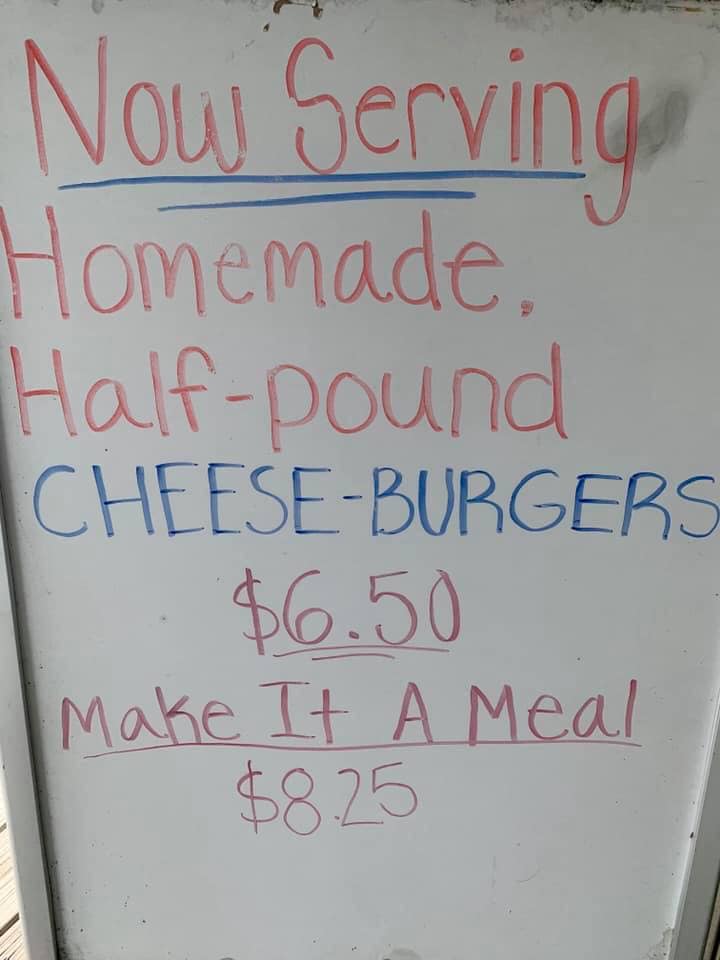 Now Serving
Homemade,
Half-pound
CHEESE-BURGERS
$6.50
Make It A Meal
$8.25